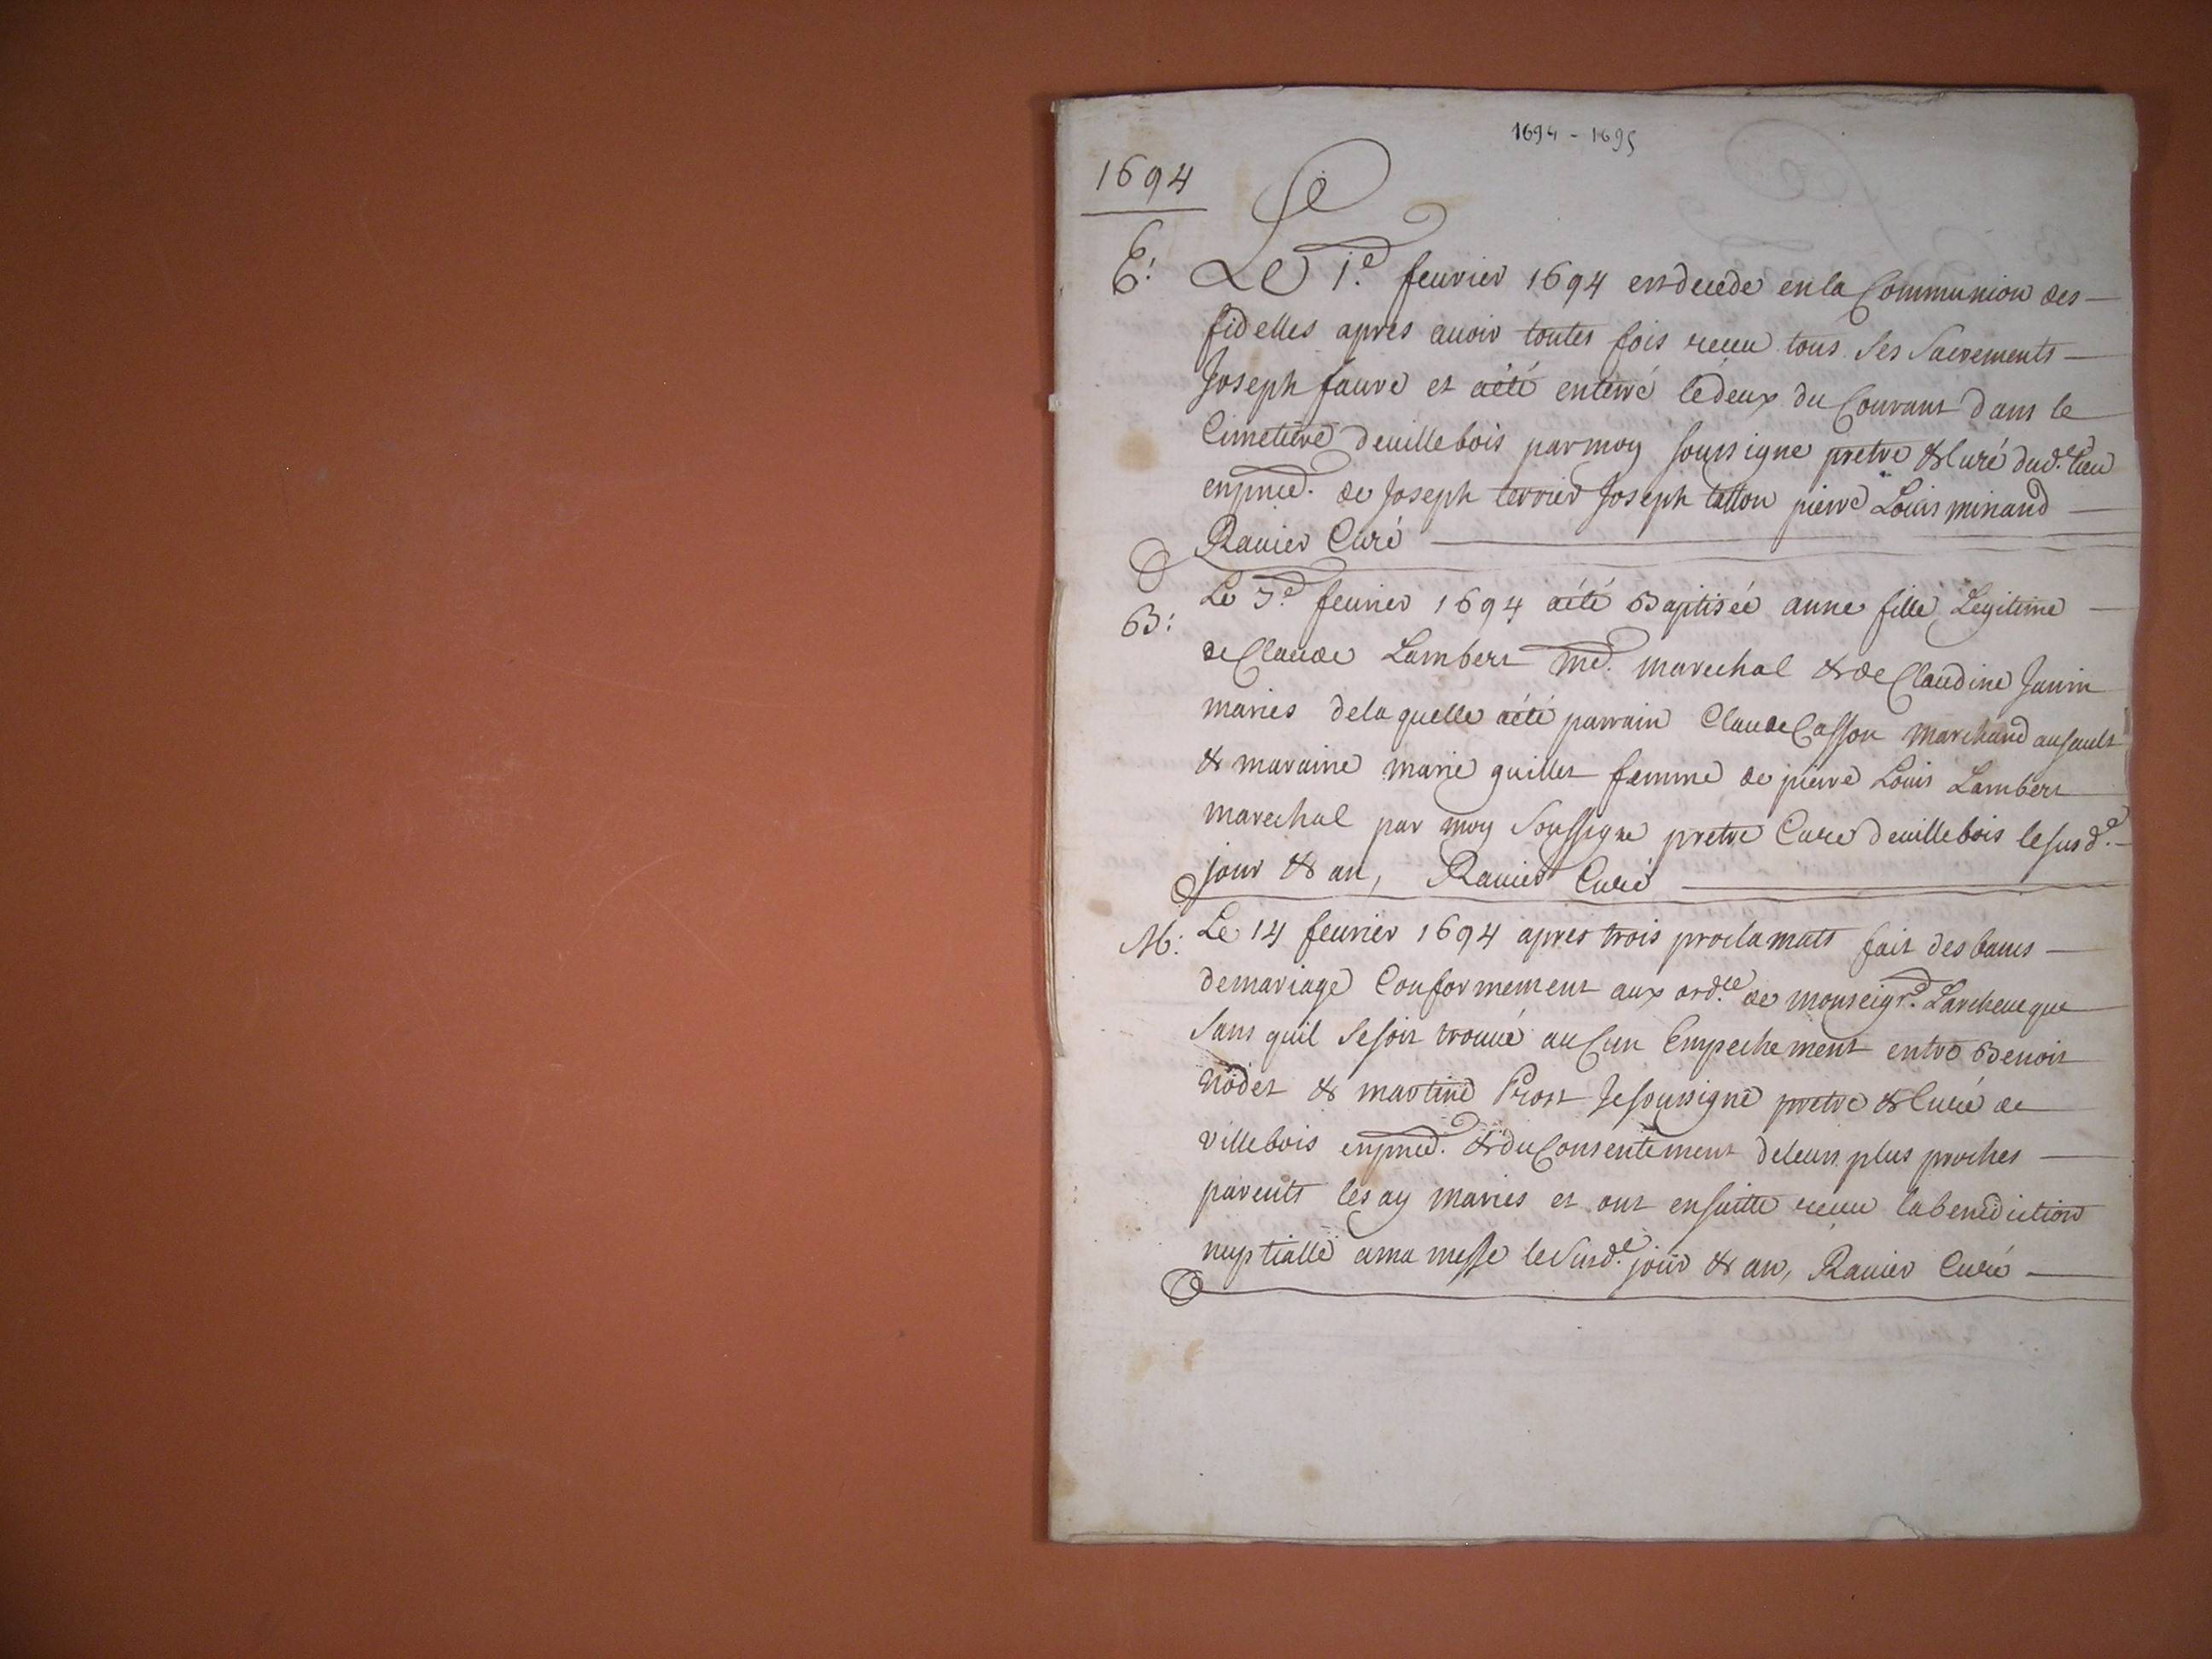 1694 - 1695
1694
E: Le 1.e feurier 1694 est decede en la Communion des
fidelles apres auoir toutes fois receu tous ses Sacrements
Joseph faure et aété enterré le deux du Courant dans le
Cimetiere deuillebois par moy soussigne pretre & Curé dud.t lieu
enpnce. de Joseph terrier Joseph tatton pierre Louis minand
Rauier Curé
B: Le feurier 1694 aété Baptisée anne fille Legitime
de Claude Lambert me. marechal & de Claudine Janin
maries delaquelle aété parrain Claude Casson marchand ausault
& maraine marie guillet femme de pierre Louis Lambert
marechal par moy Soussigne pretre Curé deuillebois lesusd.e
jour & an, Rauier Curé
M: Le 14 feurier 1694 apres trois proclamats fait des bans
demariage Conformement aux ord.ce de monseigr. Larcheueque
Sans quil Sesoit trouué auCun Empechement entre Benoit
nodet & martine Prost Jesoussigné pretre & Curé de
villebois enpnce. & du Consentement deleurs plus proches
parents les ay maries et ont ensuitte receu labenediction
nuptialle ama messe le Susd.e jour & an, Rauier Curé